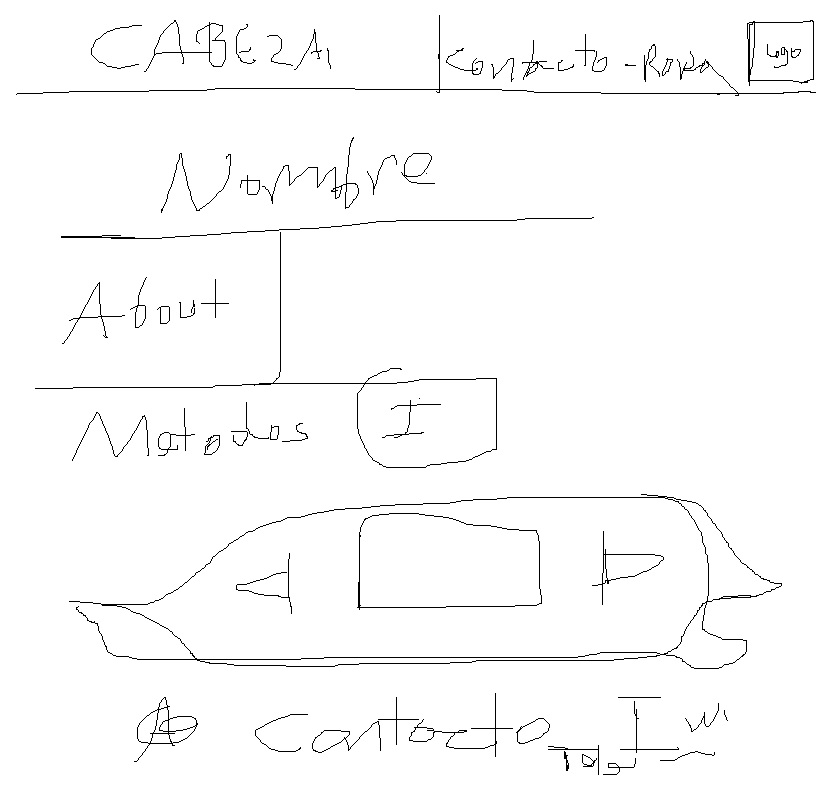 CABEZA Contacto - Ropa Logo
Nombre
About
Metodos I
A Contacto I W